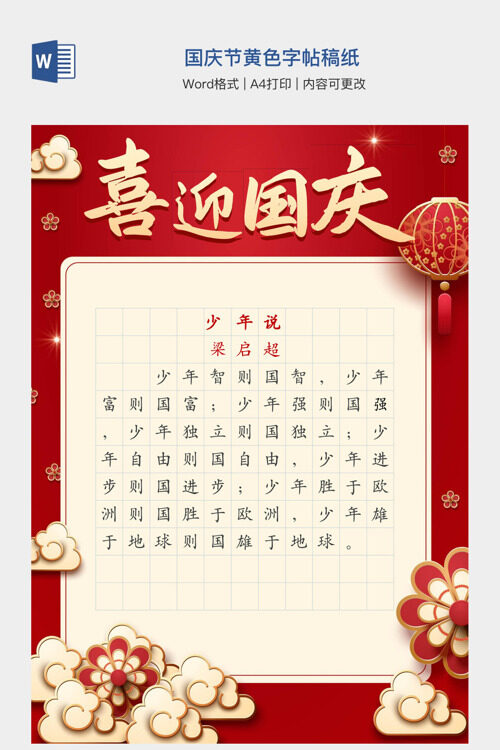 W
国庆节黄色字帖稿纸
Word格式 | A4打印 | 内容可更改
喜迎国庆
少年说
梁启超
少年智则国智，少年
富则国富；少年强则国强
，少年独立则国独立；少
年自由则国自由，少年进
步则国进步；少年胜于欧
洲则国胜于欧洲，少年雄
于地球则国雄于地球。